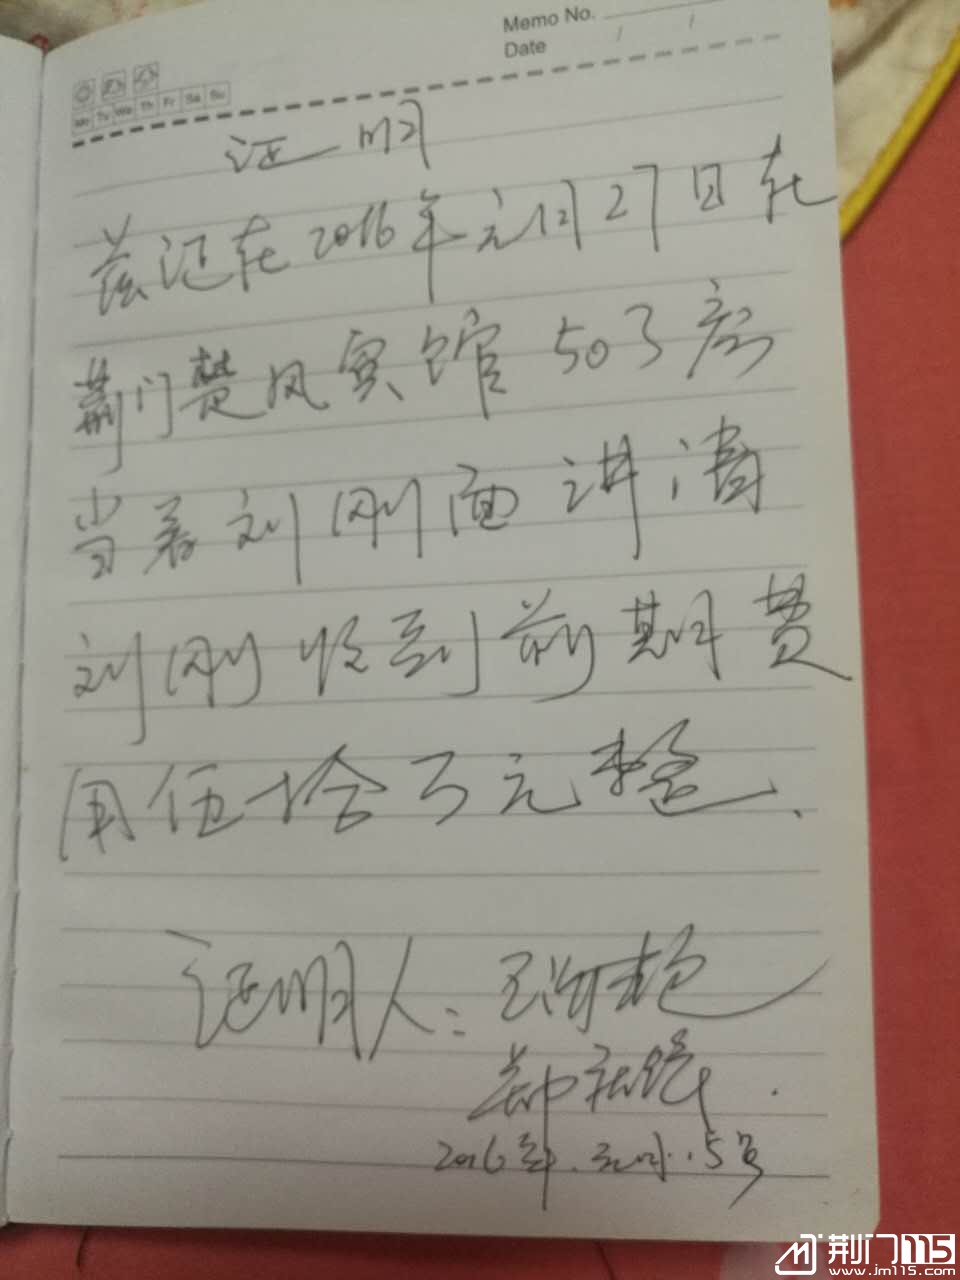 Memo No.
Date / /
Mo Tu We Th Fr Sa Su
证明
兹证在2016年元月27日在
荆门楚风宾馆503房
当着刘刚面讲清
刘刚收到前期费
用伍拾万元整.
证明人:
2016年.元月..5号
荆门115
www.jm115.com